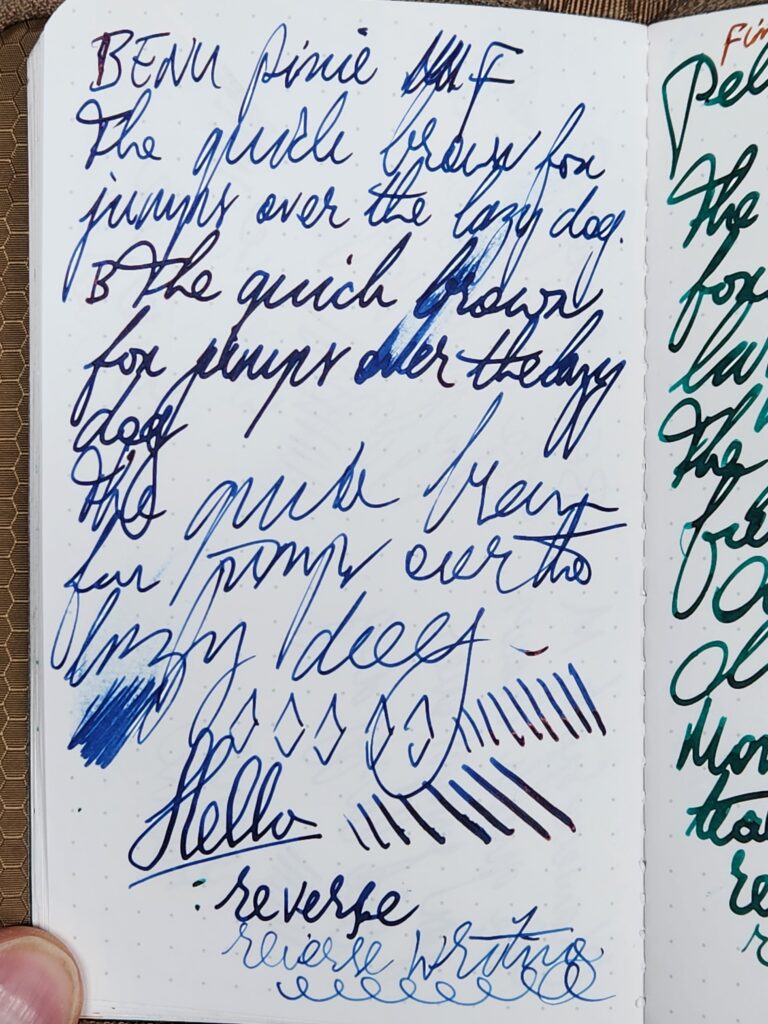 BENU pixie F
The quick brown fox
jumps over the lazy dog.
B The quick brown
fox jumps over the lazy
dog
The quick brown
fox jumps over the
lazy dog
Hello
reverse
reverse writing
Pel
The
fox
The